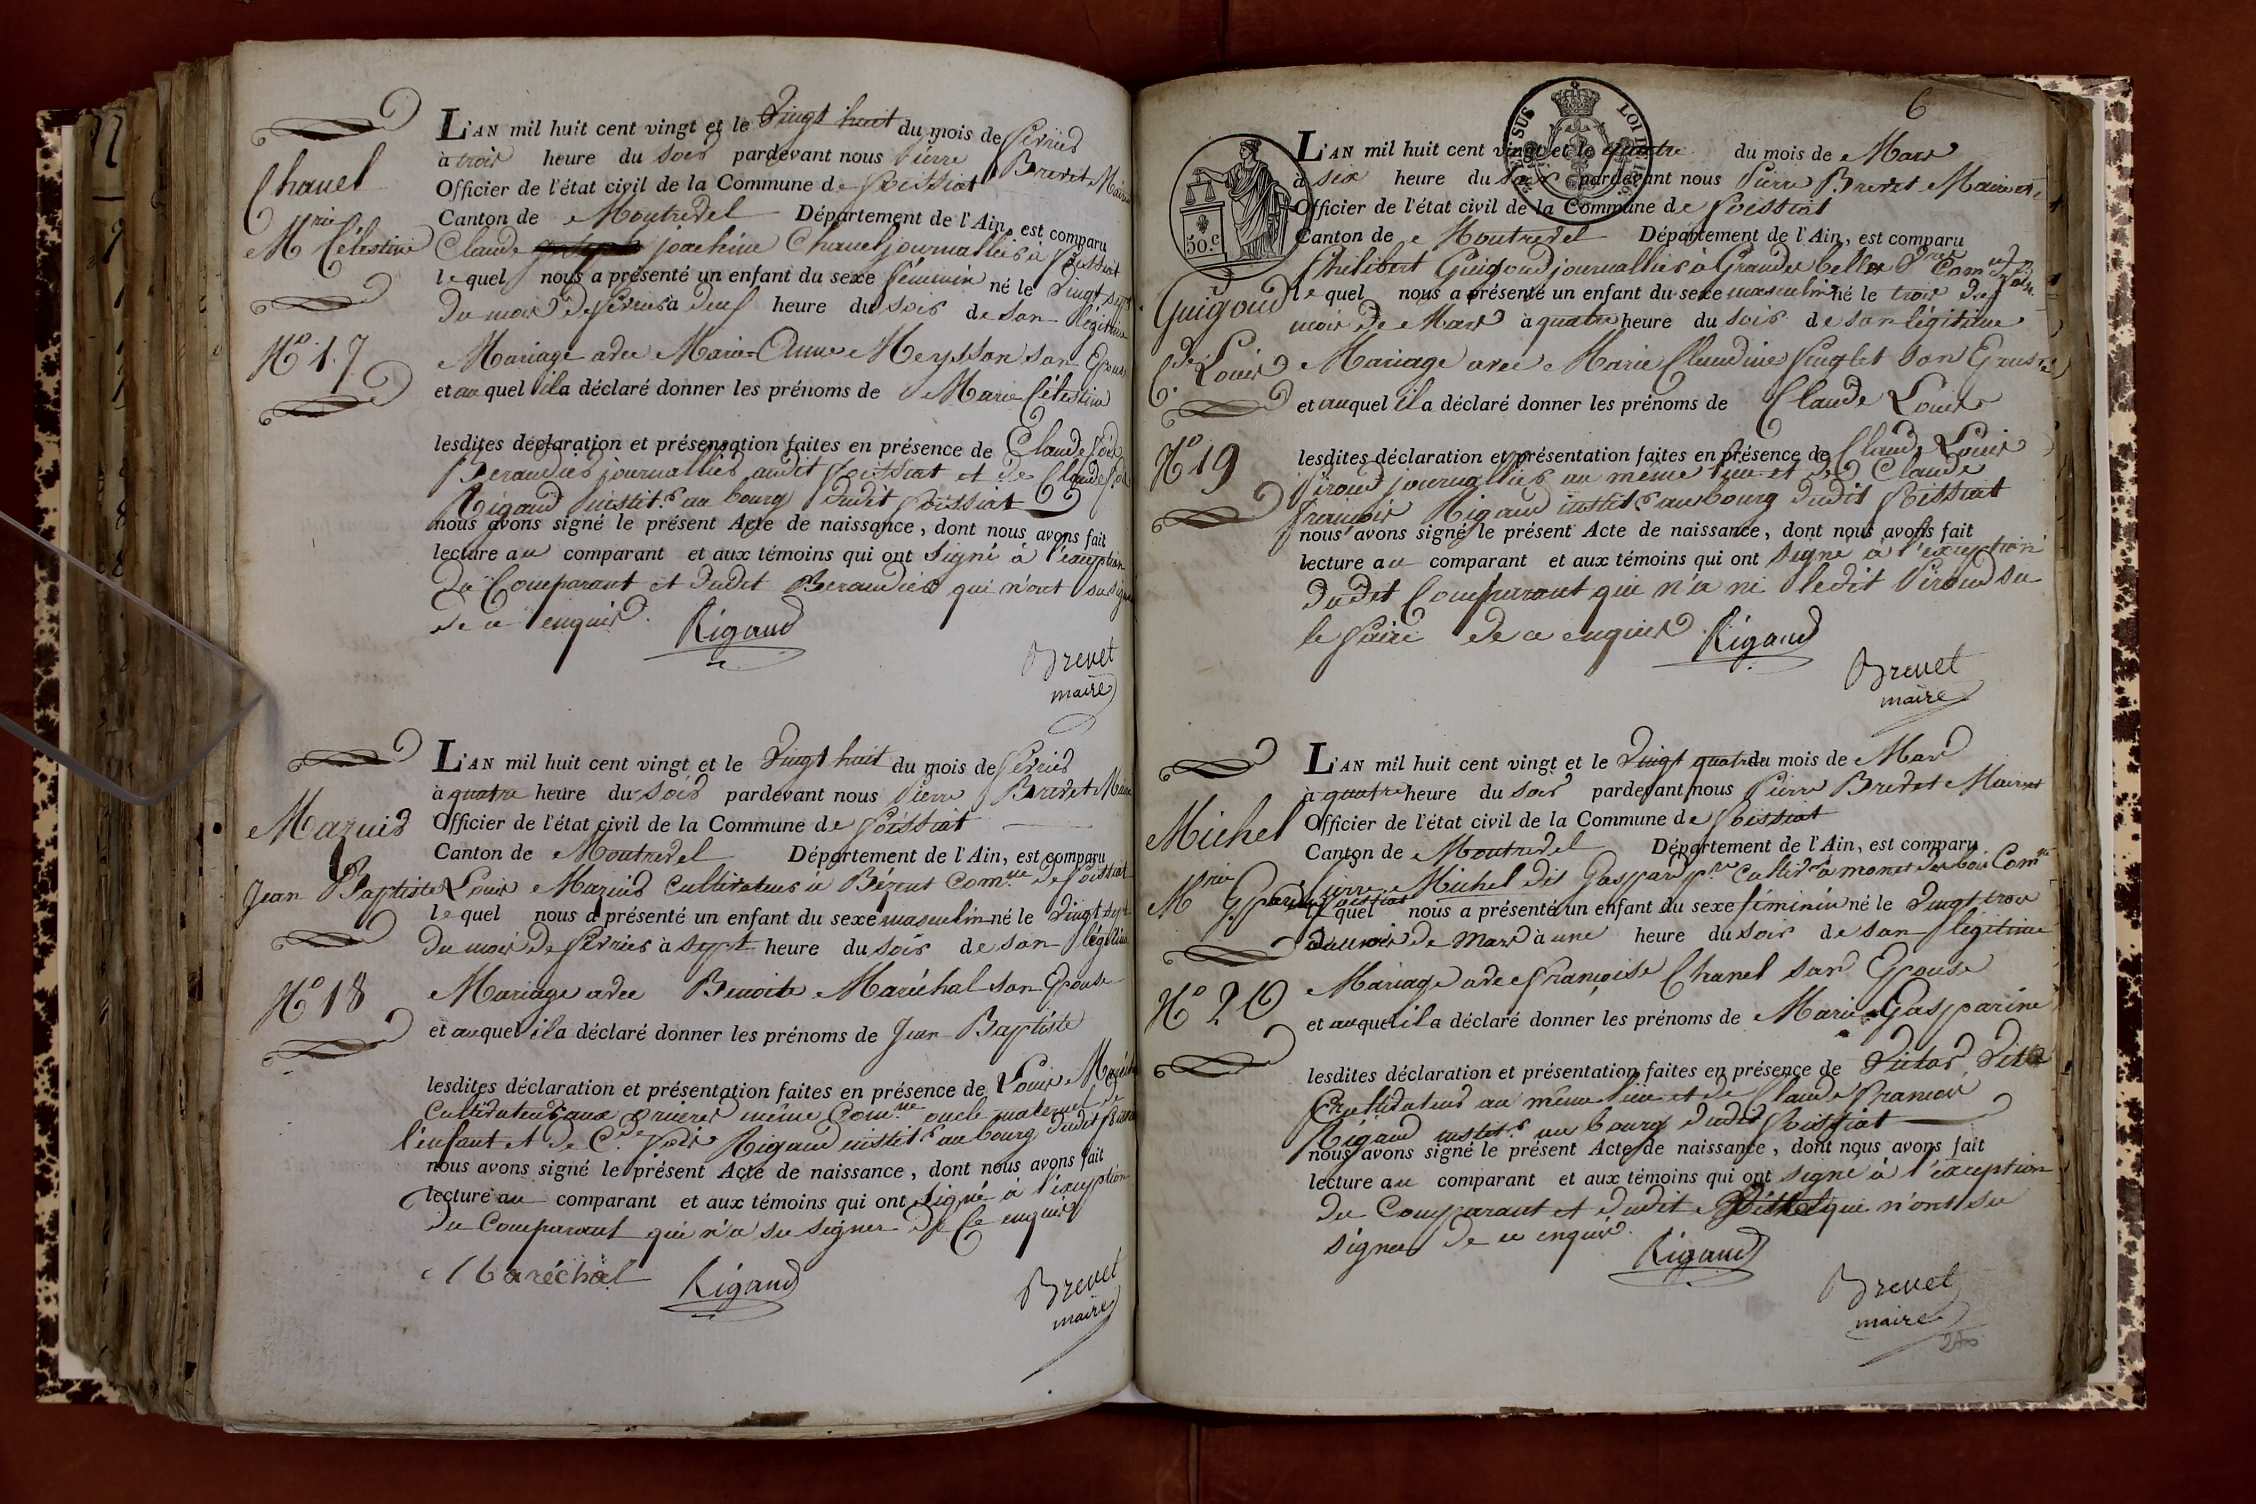 Chanel
Mrie Célestine
No 17
L'AN mil huit cent vingt et le Vingt huit du mois de Février
à trois heure du Soir pardevant nous Pierre Brevet Maire
Officier de l'état civil de la Commune de Foissiat
Canton de Montrevel Département de l'Ain, est comparu
Claude joachim Chanel journallier à Foissiat
lequel nous a présenté un enfant du sexe féminin né le Vingt sept
du mois de février à deux heure du Soir de Son légitime
Mariage avec Marie-Anne Meysson son Epouse
et auquel il a déclaré donner les prénoms de Marie Célestine
lesdites déclaration et présentation faites en présence de Claude
Beraudier journallier audit Foissiat et de Claude
Rigaud instit.r au bourg dudit Foissiat
nous avons signé le présent Acte de naissance, dont nous avons fait
lecture au comparant et aux témoins qui ont Signé à l'exception
du Comparant et dudit Beraudier qui n'ont su signer
de ce enquis.
Rigaud
Brevet
maire
Maruis
Jean Baptiste
No 18
L'AN mil huit cent vingt et le Vingt huit du mois de Février
à quatre heure du Soir pardevant nous Pierre Brevet Maire
Officier de l'état civil de la Commune de Foissiat
Canton de Montrevel Département de l'Ain, est comparu
Louis Maruis Cultivateur à Comune de Foissiat
lequel nous a présenté un enfant du sexe masculin né le Vingt sept
du mois de Février à sept heure du Soir de Son légitime
Mariage avec Benoite Maréchal son Epouse
et auquel il a déclaré donner les prénoms de Jean Baptiste
lesdites déclaration et présentation faites en présence de Louis Maréchal
Cultivateur aux même Com.ne oncle maternel de
l'enfant et de C.de Rigaud instit.r au bourg dudit Foissiat
nous avons signé le présent Acte de naissance, dont nous avons fait
lecture au comparant et aux témoins qui ont Signé à l'exception
du Comparant qui n'a su signer de Ce enquis
Maréchal Rigaud
Brevet
maire
6
SUS LOI
50.c
Guigoud
C.de Louis
No 19
L'AN mil huit cent vingt et le quatre du mois de Mars
à six heure du Soir pardevant nous Pierre Brevet Maire et
Officier de l'état civil de la Commune de Foissiat
Canton de Montrevel Département de l'Ain, est comparu
Philibert Guigoud journallier à Grandes
lequel nous a présenté un enfant du sexe masculin né le trois du
mois de Mars à quatre heure du Soir de son légitime
Mariage avec Marie Claudine son Epouse
et auquel il a déclaré donner les prénoms de Claude Louis
lesdites déclaration et présentation faites en présence de Claude Louis
Piroud journallier au même lieu et de Claude
françois Rigaud instit.r au bourg dudit Foissiat
nous avons signé le présent Acte de naissance, dont nous avons fait
lecture au comparant et aux témoins qui ont Signé à l'exception
dudit Comparant qui n'a ni ledit Piroud su
le faire de ce enquis
Rigaud
Brevet
maire
Michel
Mrie Gasp.
No 20
L'AN mil huit cent vingt et le Vingt quatre du mois de Mars
à quatre heure du Soir pardevant nous Pierre Brevet Maire et
Officier de l'état civil de la Commune de Foissiat
Canton de Montrevel Département de l'Ain, est comparu
Pierre Michel dit Gaspard Cultiv.r à des bois Com.ne
de Foissiat
lequel nous a présenté un enfant du sexe féminin né le Vingt trois
du mois de Mars à une heure du Soir de son légitime
Mariage avec françoise Chanel son Epouse
et auquel il a déclaré donner les prénoms de Marie Gasparine
lesdites déclaration et présentation faites en présence de Victor
Cultivateur au même lieu et de Claude François
Rigaud instit.r au bourg dudit Foissiat
nous avons signé le présent Acte de naissance, dont nous avons fait
lecture au comparant et aux témoins qui ont signé à l'exception
du Comparant et dudit qui n'ont su
signer de ce enquis.
Rigaud
Brevet
maire